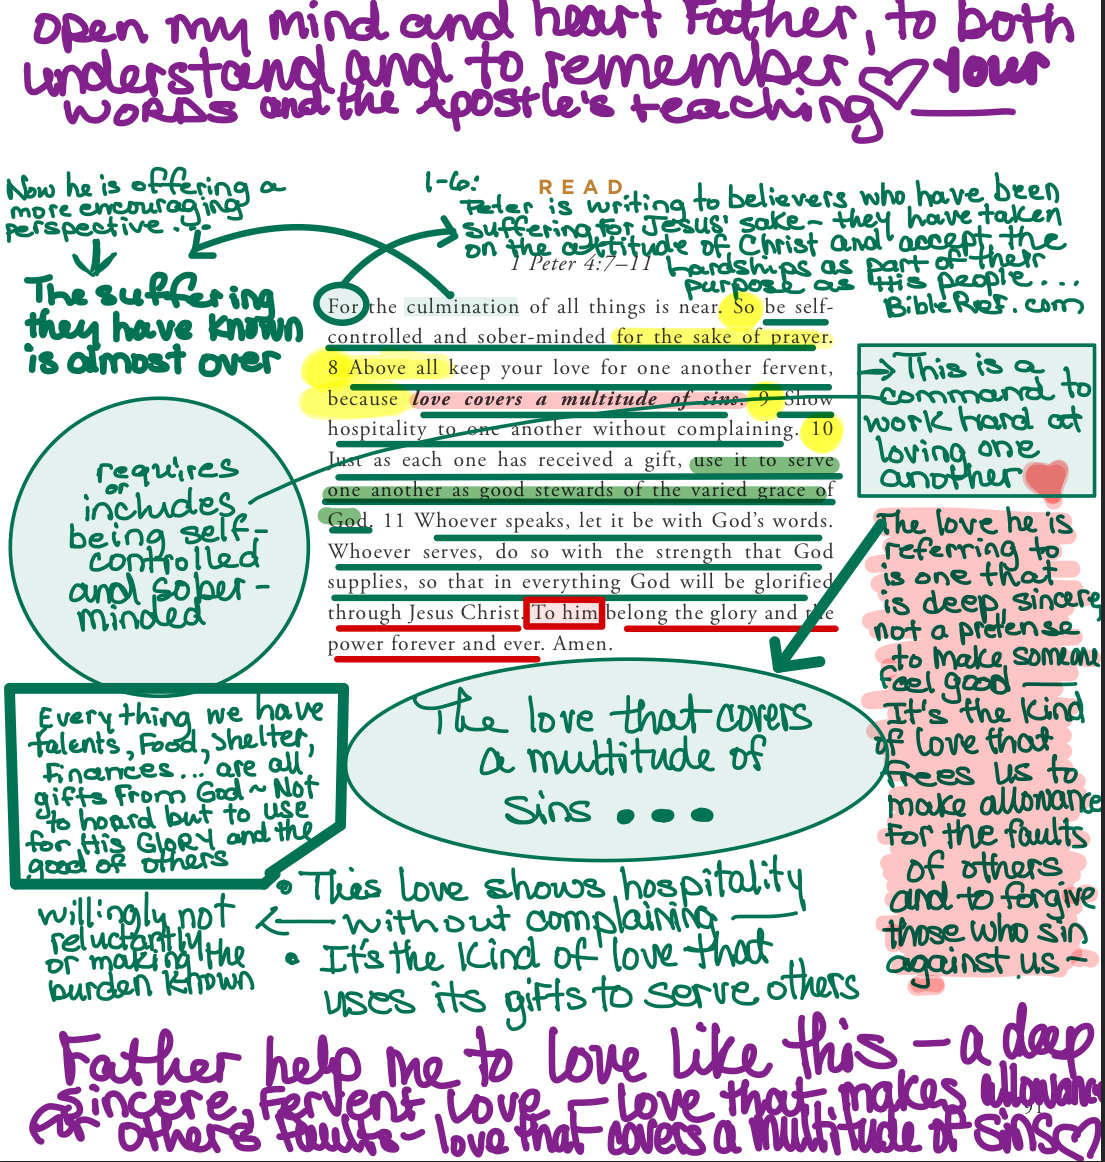 open my mind and heart Father, to both
understand and to remember ♡ your
words and the Apostle's teaching
Now he is offering a
more encouraging
perspective ...
The suffering
they have known
is almost over
1-6:
READ
Peter is writing to believers who have been
suffering for Jesus' sake – they have taken
on the attitude of Christ and accept the
hardships as part of their
purpose as His people...
BibleRef.com
1 Peter 4:7–11
For the culmination of all things is near. So be self-
controlled and sober-minded for the sake of prayer.
8 Above all keep your love for one another fervent,
because love covers a multitude of sins. 9 Show
hospitality to one another without complaining. 10
Just as each one has received a gift, use it to serve
one another as good stewards of the varied grace of
God. 11 Whoever speaks, let it be with God's words.
Whoever serves, do so with the strength that God
supplies, so that in everything God will be glorified
through Jesus Christ. To him belong the glory and the
power forever and ever. Amen.
This is a
command to
work hard at
loving one
another
requires
or
includes
being self-
controlled
and sober-
minded
The love he is
referring to
is one that
is deep, sincere,
not a pretense
to make someone
feel good —
It's the kind
of love that
frees us to
make allowance
for the faults
of others
and to forgive
those who sin
against us ~
Everything we have
talents, Food, Shelter,
finances... are all
gifts from God ~ Not
to hoard but to use
for His GloRy and the
good of others
The love that covers
a multitude of
sins ...
• This love shows hospitality
without complaining —
• It's the kind of love that
uses its gifts to serve others
willingly not
reluctantly
or making the
burden known
Father help me to love like this – a deep
sincere, fervent love – love that makes allowance
for others faults – love that covers a multitude of sins ♡
91